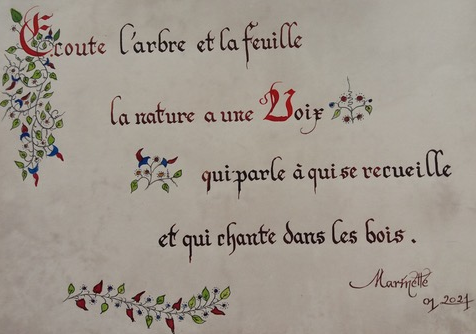 Ecoute l'arbre et la feuille
la nature a une Voix
qui parle à qui se recueille
et qui chante dans les bois.
Marinette
01 2021